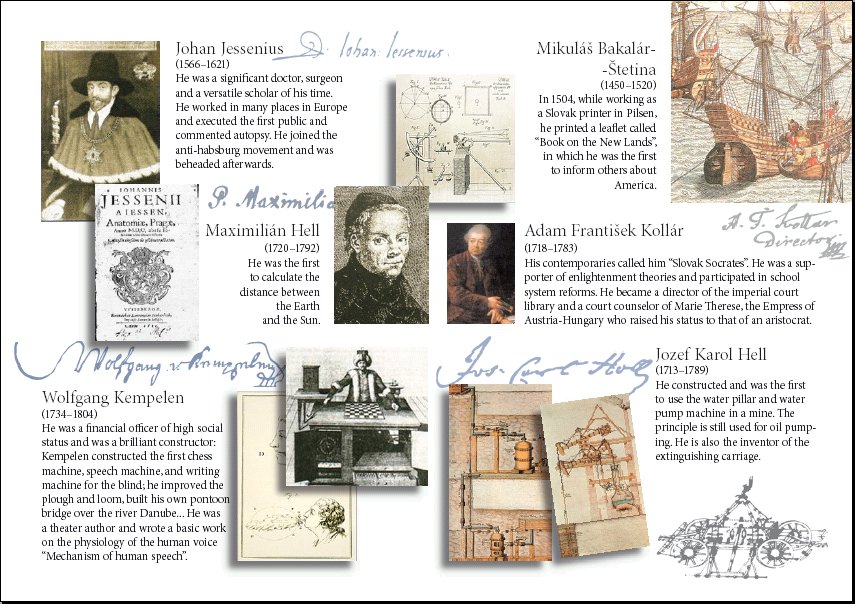 Johan Jessenius
(1566–1621)
He was a significant doctor, surgeon
and a versatile scholar of his time.
He worked in many places in Europe
and executed the first public and
commented autopsy. He joined the
anti-habsburg movement and was
beheaded afterwards.
D. Iohan: Iessenius.
Mikuláš Bakalár-
-Štetina
(1450–1520)
In 1504, while working as
a Slovak printer in Pilsen,
he printed a leaflet called
“Book on the New Lands”,
in which he was the first
to inform others about
America.
IOHANNIS
JESSENII
A IESSEN,
Anatomiæ, Pragæ,
P. Maximilia
Maximilián Hell
(1720–1792)
He was the first
to calculate the
distance between
the Earth
and the Sun.
Adam František Kollár
(1718–1783)
His contemporaries called him “Slovak Socrates”. He was a sup-
porter of enlightenment theories and participated in school
system reforms. He became a director of the imperial court
library and a court counselor of Marie Therese, the Empress of
Austria-Hungary who raised his status to that of an aristocrat.
A. F. Kollar
Director
Wolfgang v. Kempelen
Wolfgang Kempelen
(1734–1804)
He was a financial officer of high social
status and was a brilliant constructor:
Kempelen constructed the first chess
machine, speech machine, and writing
machine for the blind; he improved the
plough and loom, built his own pontoon
bridge over the river Danube... He was
a theater author and wrote a basic work
on the physiology of the human voice
“Mechanism of human speech”.
Jos. Carl Höll
Jozef Karol Hell
(1713–1789)
He constructed and was the first
to use the water pillar and water
pump machine in a mine. The
principle is still used for oil pump-
ing. He is also the inventor of the
extinguishing carriage.